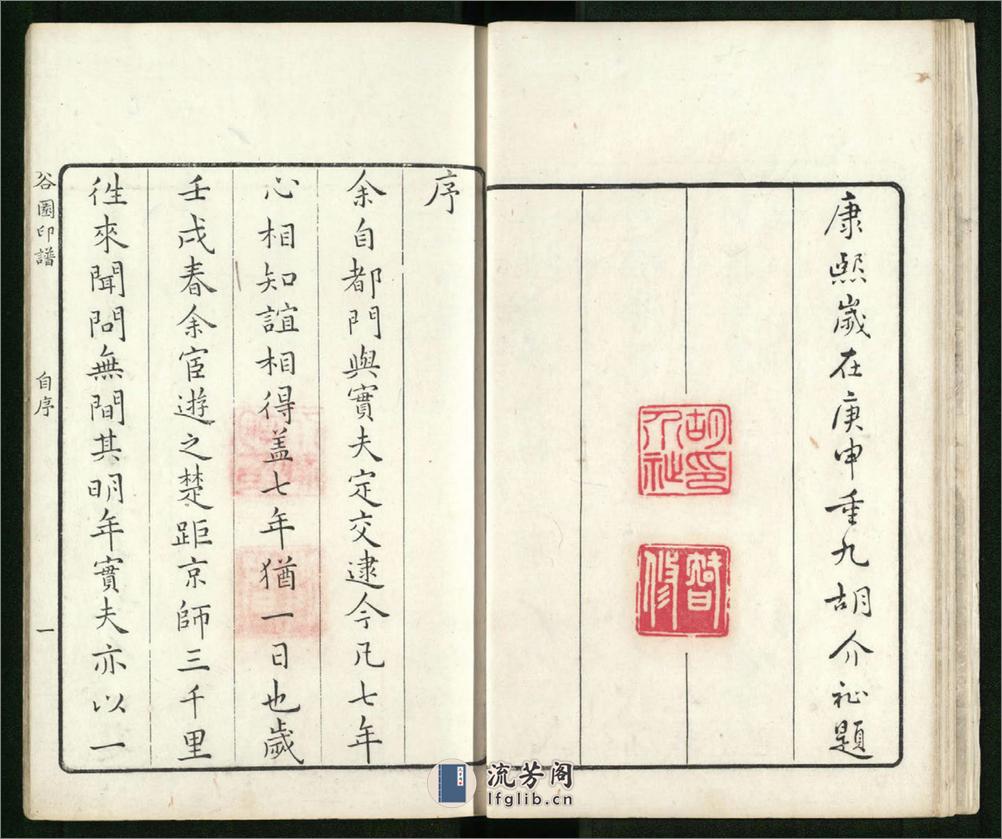 康熙歲在庚申重九胡介祉題
胡介祉印
智修
序
余自都門與實夫定交逮今凡七年
心相知誼相得盖七年猶一日也歲
壬戌春余宦遊之楚距京師三千里
往來聞問無間其明年實夫亦以一
谷園印譜
自序
一
流芳阁
lfglib.cn